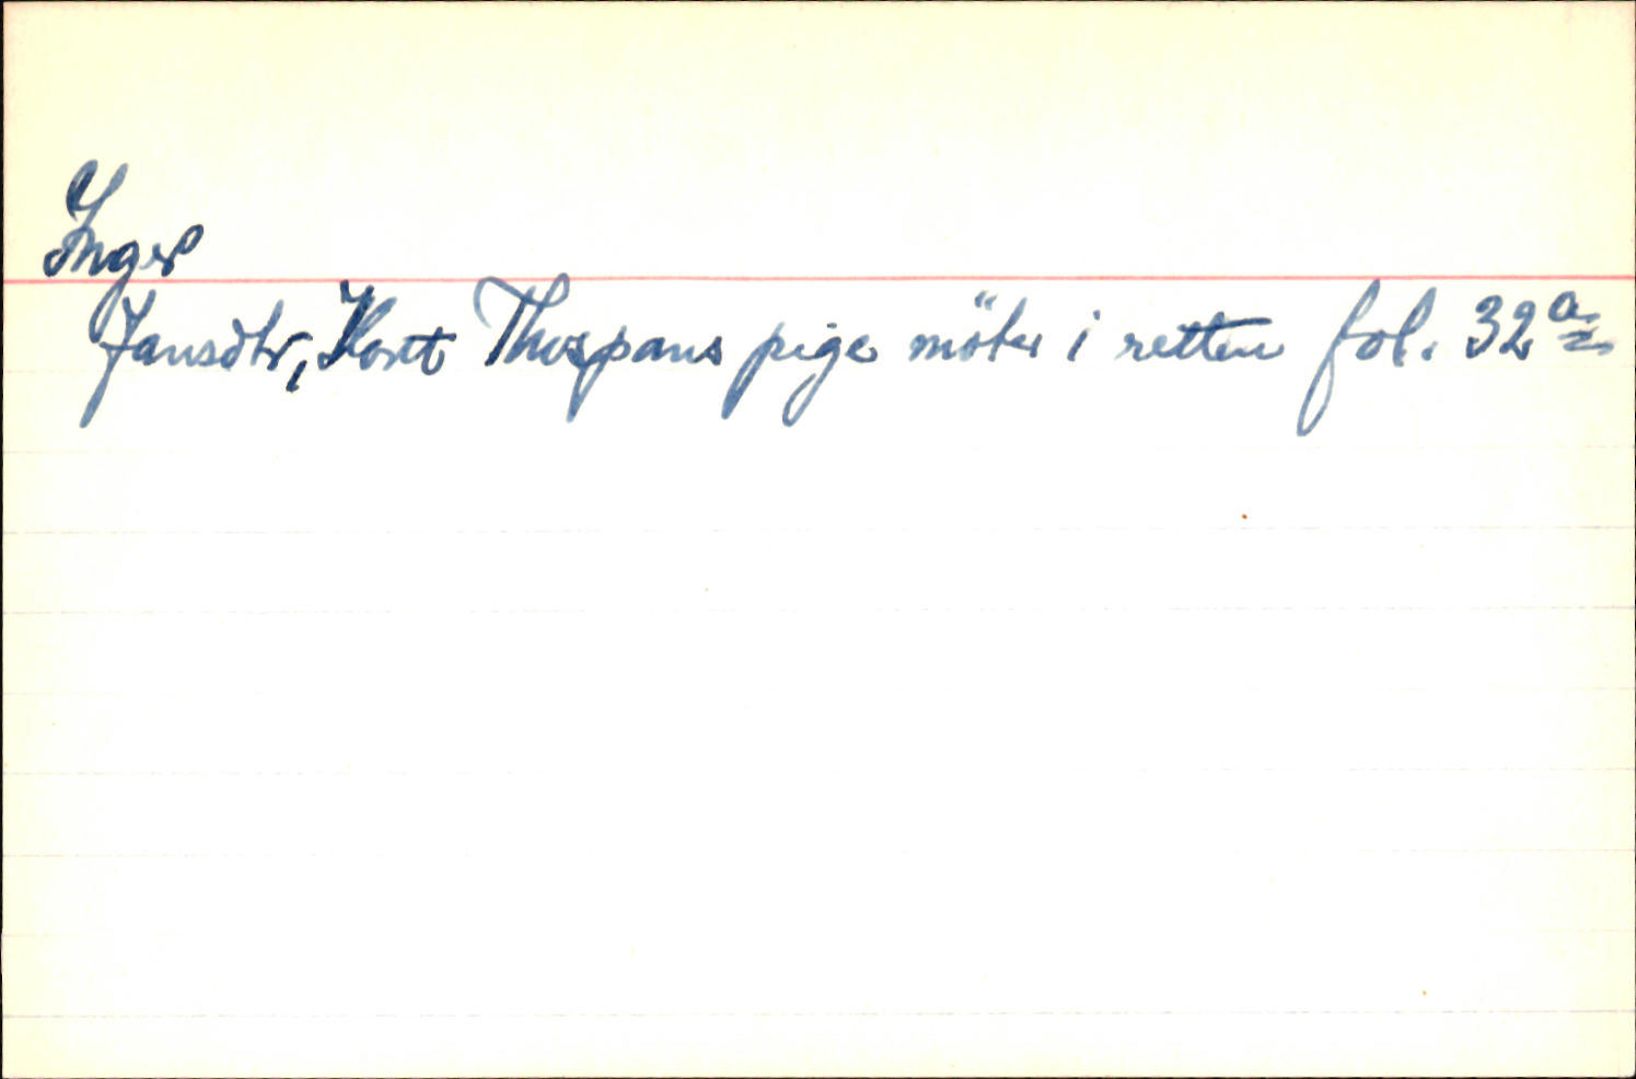 Inger
Jansdtr, Kort Thospans pige möter i retten fol. 32a